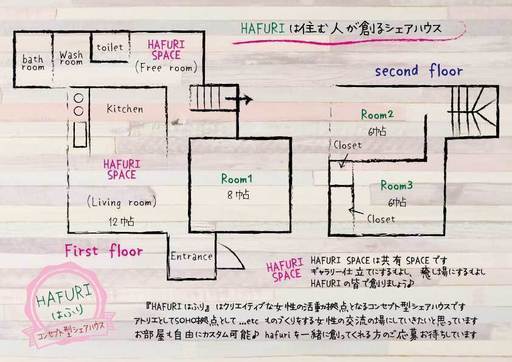 HAFURIは住む人が創るシェアハウス
bath room
Wash room
toilet
HAFURI SPACE
(Free room)
second floor
Kitchen
Room2
6帖
Closet
HAFURI SPACE
(Living room)
12帖
Room1
8帖
Room3
6帖
Closet
First floor
Entrance
HAFURI SPACE
HAFURI SPACEは共有SPACEです
ギャラリー仕立てにするもよし、癒し場にするもよし
HAFURIの皆で創りましょう♪
HAFURI
はふり
コンセプト型シェアハウス
『HAFURIはふり』はクリエイティブな女性の活動が拠点となるコンセプト型シェアハウスです
アトリエとしてSOHO拠点として...etc ものづくりをする女性の交流の場にしていきたいと思っています
お部屋も自由にカスタム可能♪ hafuriを一緒に創ってくれる方のご応募お待ちしています